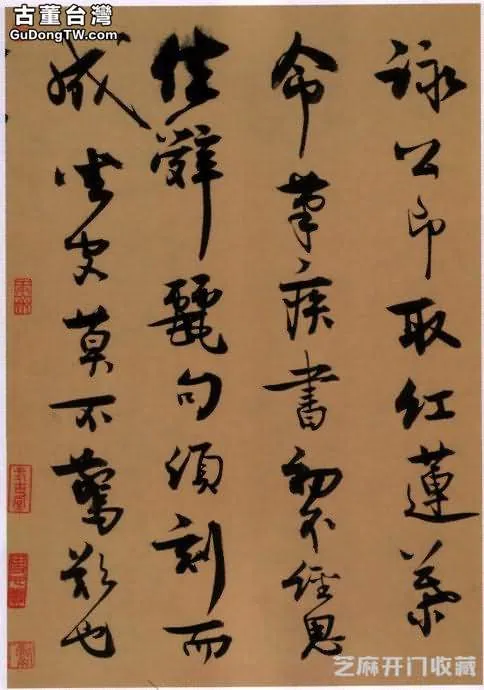 古董台灣
GuDongTW.com
詠公即取紅蓮葉
命筆疾書初不經思
佳辭麗句須刻而
成坐客莫不驚歎也
芝麻开门收藏